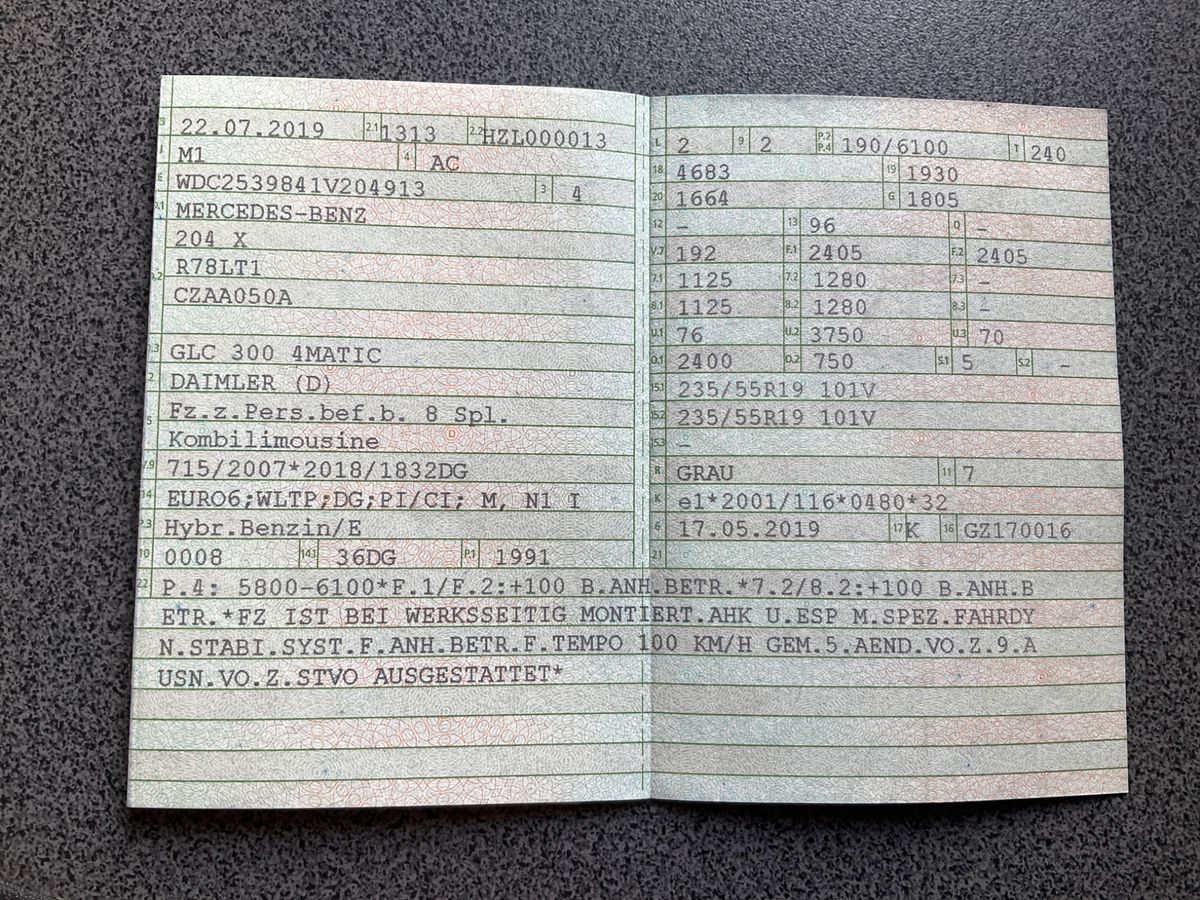 22.07.2019 2.1 1313 2.2 HZL000013
M1 4 AC
WDC2539841V204913 3 4
MERCEDES-BENZ
204 X
R78LT1
CZAA050A
GLC 300 4MATIC
DAIMLER (D)
Fz.z.Pers.bef.b. 8 Spl.
Kombilimousine
715/2007*2018/1832DG
14 EURO6;WLTP;DG;PI/CI; M, N1 I
P.3 Hybr.Benzin/E
10 0008 14.1 36DG P.1 1991
L 2 9 2 P.2 P.4 190/6100 T 240
18 4683 19 1930
20 1664 G 1805
12 – 13 96 Q –
V.7 192 F.1 2405 F.2 2405
7.1 1125 7.2 1280 7.3 –
8.1 1125 8.2 1280 8.3 –
U.1 76 U.2 3750 U.3 70
O.1 2400 O.2 750 S.1 5 S.2 –
15.1 235/55R19 101V
15.2 235/55R19 101V
15.3 –
R GRAU 11 7
K e1*2001/116*0480*32
6 17.05.2019 17 K 16 GZ170016
21
22 P.4: 5800-6100*F.1/F.2:+100 B.ANH.BETR.*7.2/8.2:+100 B.ANH.B
ETR.*FZ IST BEI WERKSSEITIG MONTIERT.AHK U.ESP M.SPEZ.FAHRDY
N.STABI.SYST.F.ANH.BETR.F.TEMPO 100 KM/H GEM.5.AEND.VO.Z.9.A
USN.VO.Z.STVO AUSGESTATTET*